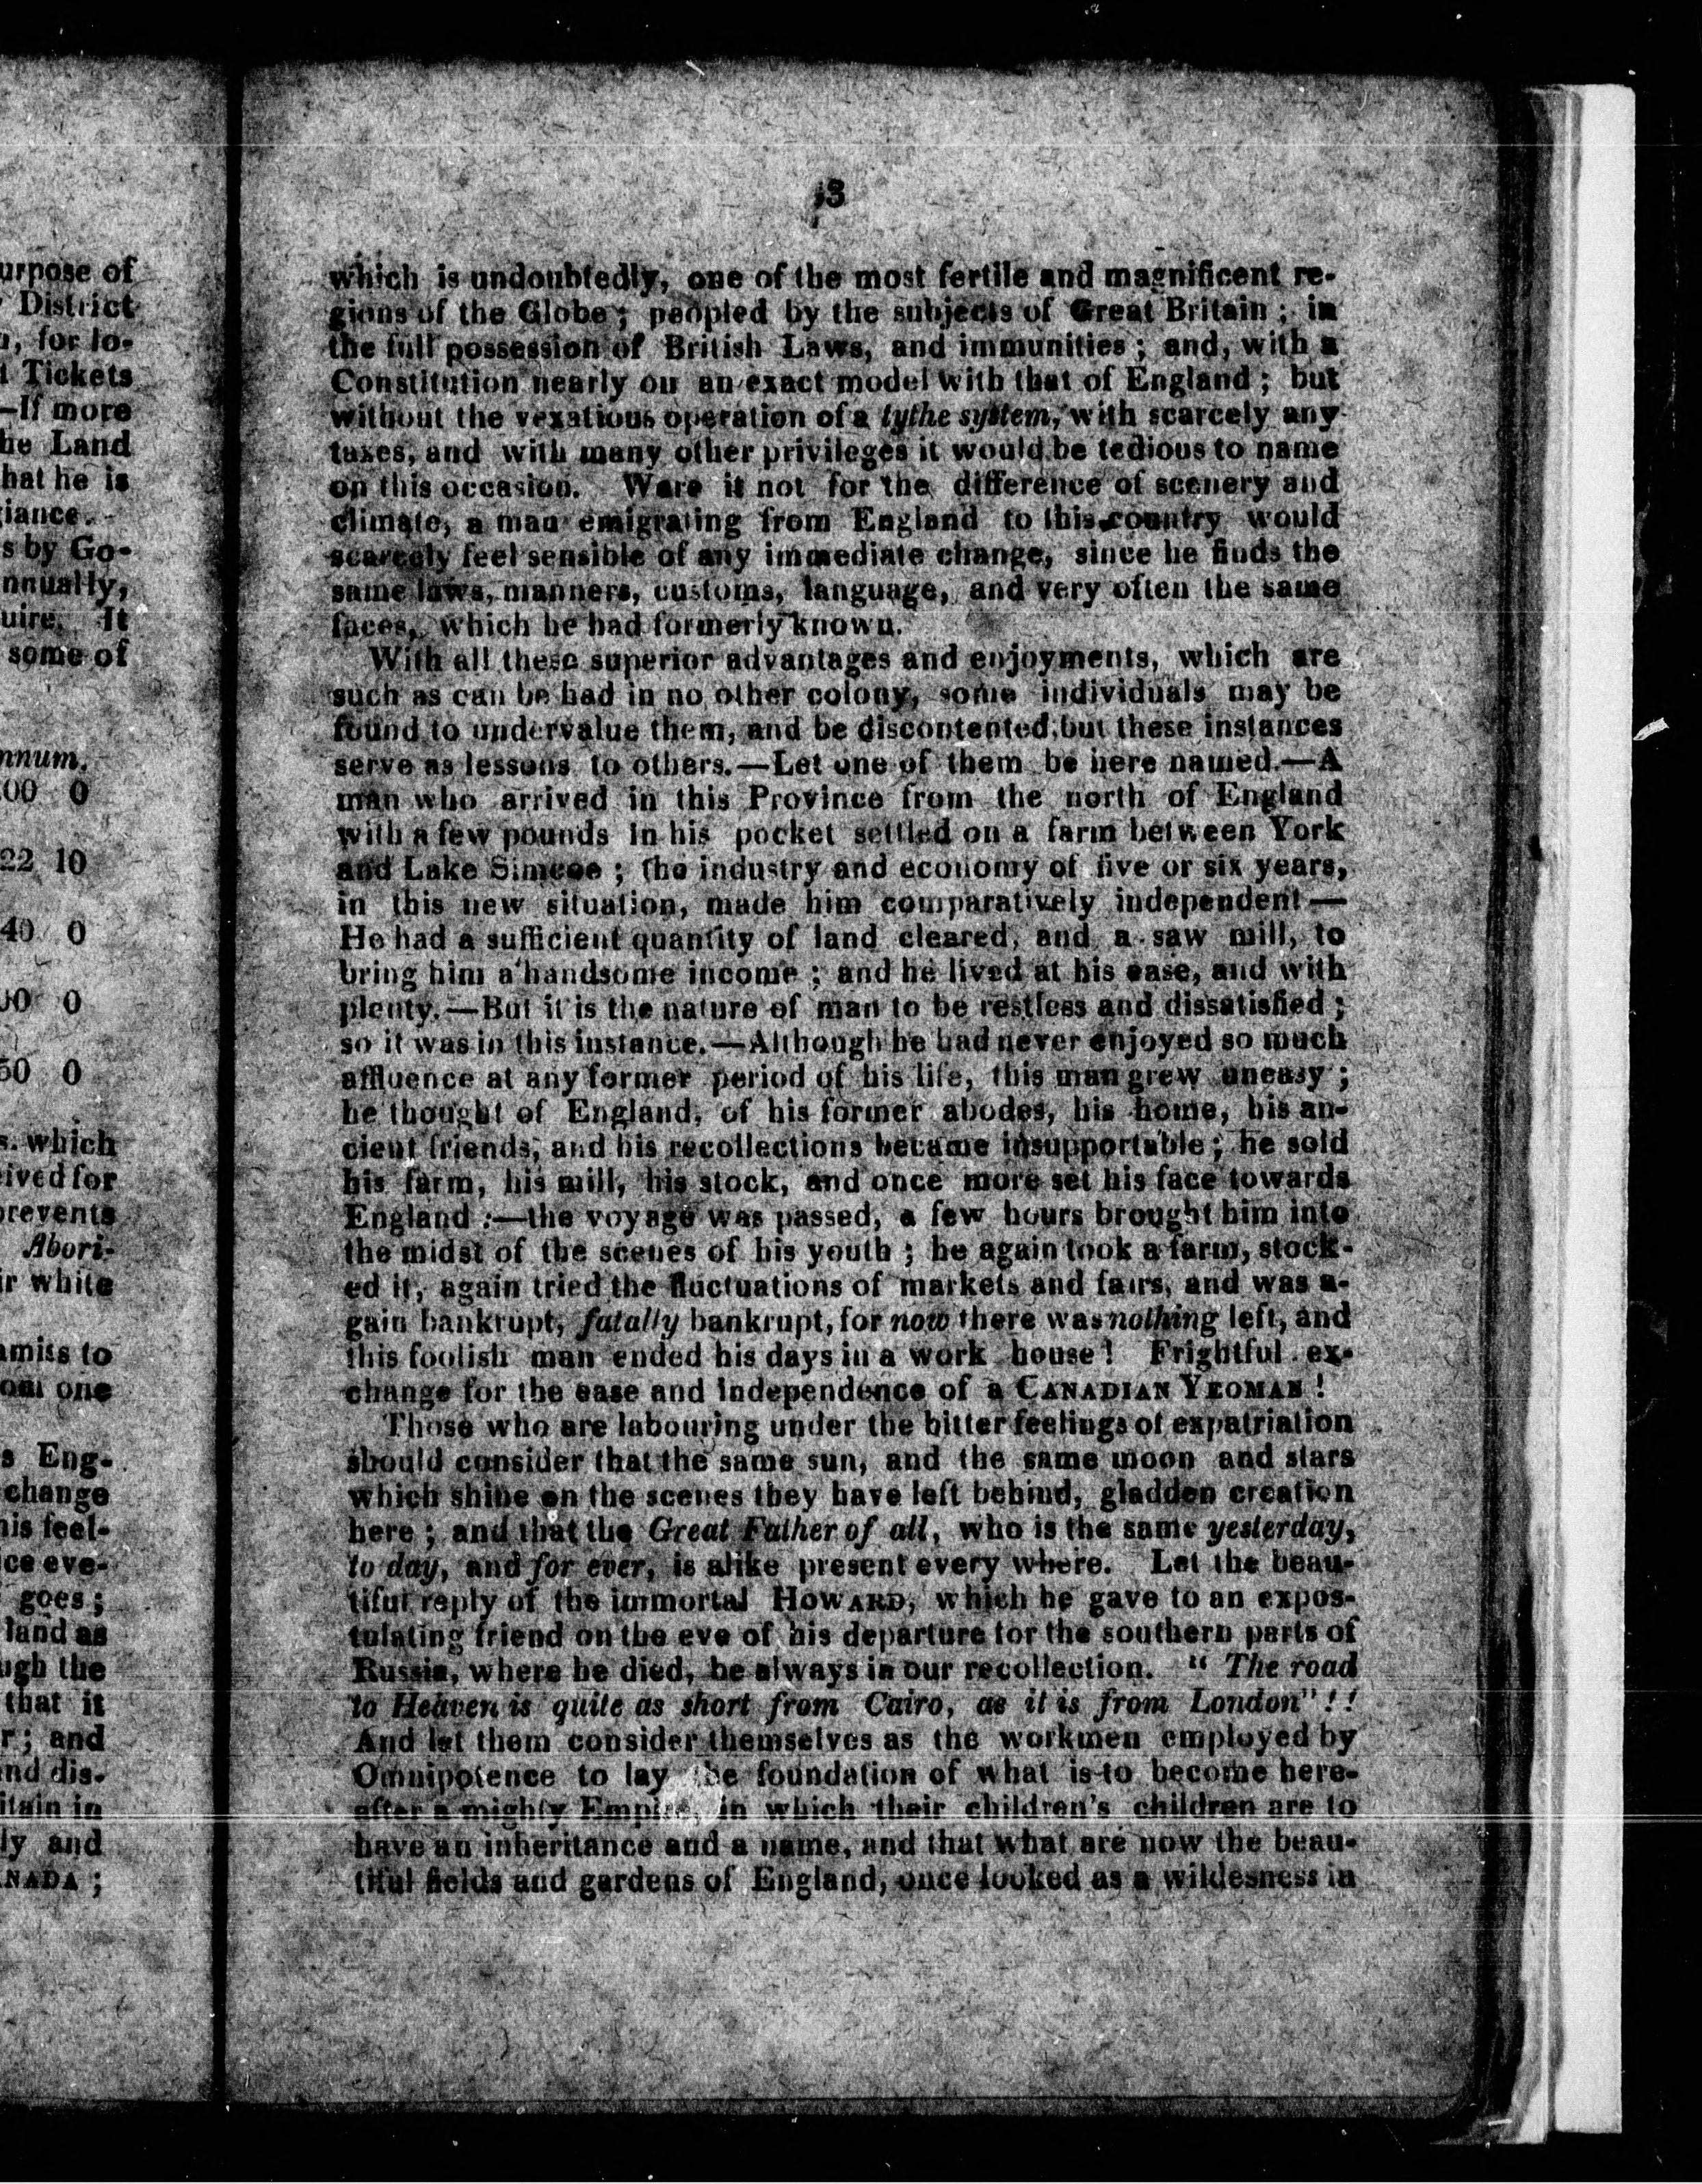 urpose of
District
, for lo-
Tickets
—If more
he Land
hat he is
iance.
s by Go-
nnually,
uire. It
some of
nnum.
00 0
22 10
40 0
00 0
50 0
s. which
ived for
prevents
Abori-
ir white
amiss to
om one
s Eng-
change
his feel-
ce eve-
goes;
land as
ugh the
that it
r; and
nd dis-
itain in
ly and
NADA;
13
which is undoubtedly, one of the most fertile and magnificent re-
gions of the Globe; peopled by the subjects of Great Britain; in
the full possession of British Laws, and immunities; and, with a
Constitution nearly on an exact model with that of England; but
without the vexatious operation of a tythe system, with scarcely any
taxes, and with many other privileges it would be tedious to name
on this occasion. Were it not for the difference of scenery and
climate, a man emigrating from England to this country would
scarcely feel sensible of any immediate change, since he finds the
same laws, manners, customs, language, and very often the same
faces, which he had formerly known.
With all these superior advantages and enjoyments, which are
such as can be had in no other colony, some individuals may be
found to undervalue them, and be discontented, but these instances
serve as lessons to others.—Let one of them be here named.—A
man who arrived in this Province from the north of England
with a few pounds in his pocket settled on a farm between York
and Lake Simcoe; the industry and economy of five or six years,
in this new situation, made him comparatively independent—
He had a sufficient quantity of land cleared, and a saw mill, to
bring him a handsome income; and he lived at his ease, and with
plenty.—But it is the nature of man to be restless and dissatisfied;
so it was in this instance.—Although he had never enjoyed so much
affluence at any former period of his life, this man grew uneasy;
he thought of England, of his former abodes, his home, his an-
cient friends, and his recollections became insupportable; he sold
his farm, his mill, his stock, and once more set his face towards
England:—the voyage was passed, a few hours brought him into
the midst of the scenes of his youth; he again took a farm, stock-
ed it, again tried the fluctuations of markets and fairs, and was a-
gain bankrupt, fatally bankrupt, for now there was nothing left, and
this foolish man ended his days in a work house! Frightful ex-
change for the ease and independence of a CANADIAN YEOMAN!
Those who are labouring under the bitter feelings of expatriation
should consider that the same sun, and the same moon and stars
which shine on the scenes they have left behind, gladden creation
here; and that the Great Father of all, who is the same yesterday,
to day, and for ever, is alike present every where. Let the beau-
tiful reply of the immortal HOWARD, which he gave to an expos-
tulating friend on the eve of his departure for the southern parts of
Russia, where he died, be always in our recollection. "The road
to Heaven is quite as short from Cairo, as it is from London"!!
And let them consider themselves as the workmen employed by
Omnipotence to lay the foundation of what is to become here-
after a mighty Empire, in which their children's children are to
have an inheritance and a name, and that what are now the beau-
tiful fields and gardens of England, once looked as a wildesness in